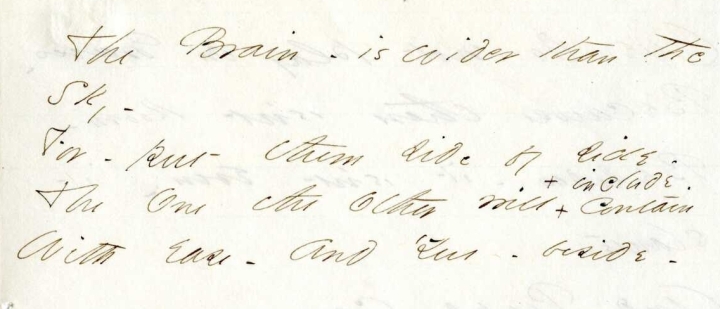 The Brain - is wider than the
Sky -
For - put them side by side -
+ include.
The One the Other will + Contain
With Ease - and You - beside -